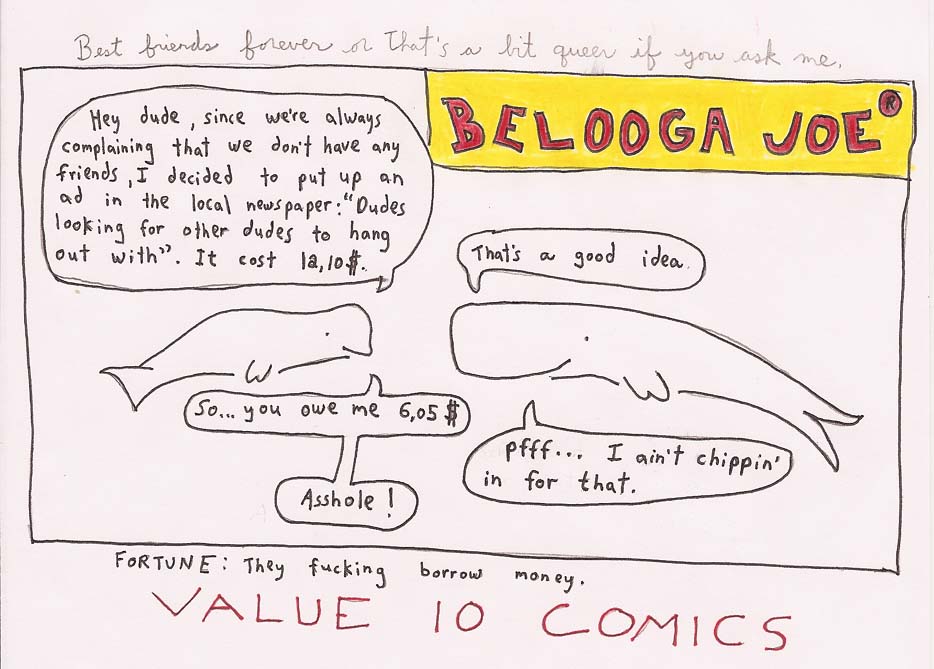 Best friends forever or That's a bit queer if you ask me.
BELOOGA JOE®
Hey dude, since we're always
complaining that we don't have any
friends, I decided to put up an
ad in the local newspaper: "Dudes
looking for other dudes to hang
out with". It cost 12,10$.
That's a good idea.
So... you owe me 6,05$
pfff... I ain't chippin'
in for that.
Asshole!
FORTUNE: They fucking borrow money.
VALUE 10 COMICS